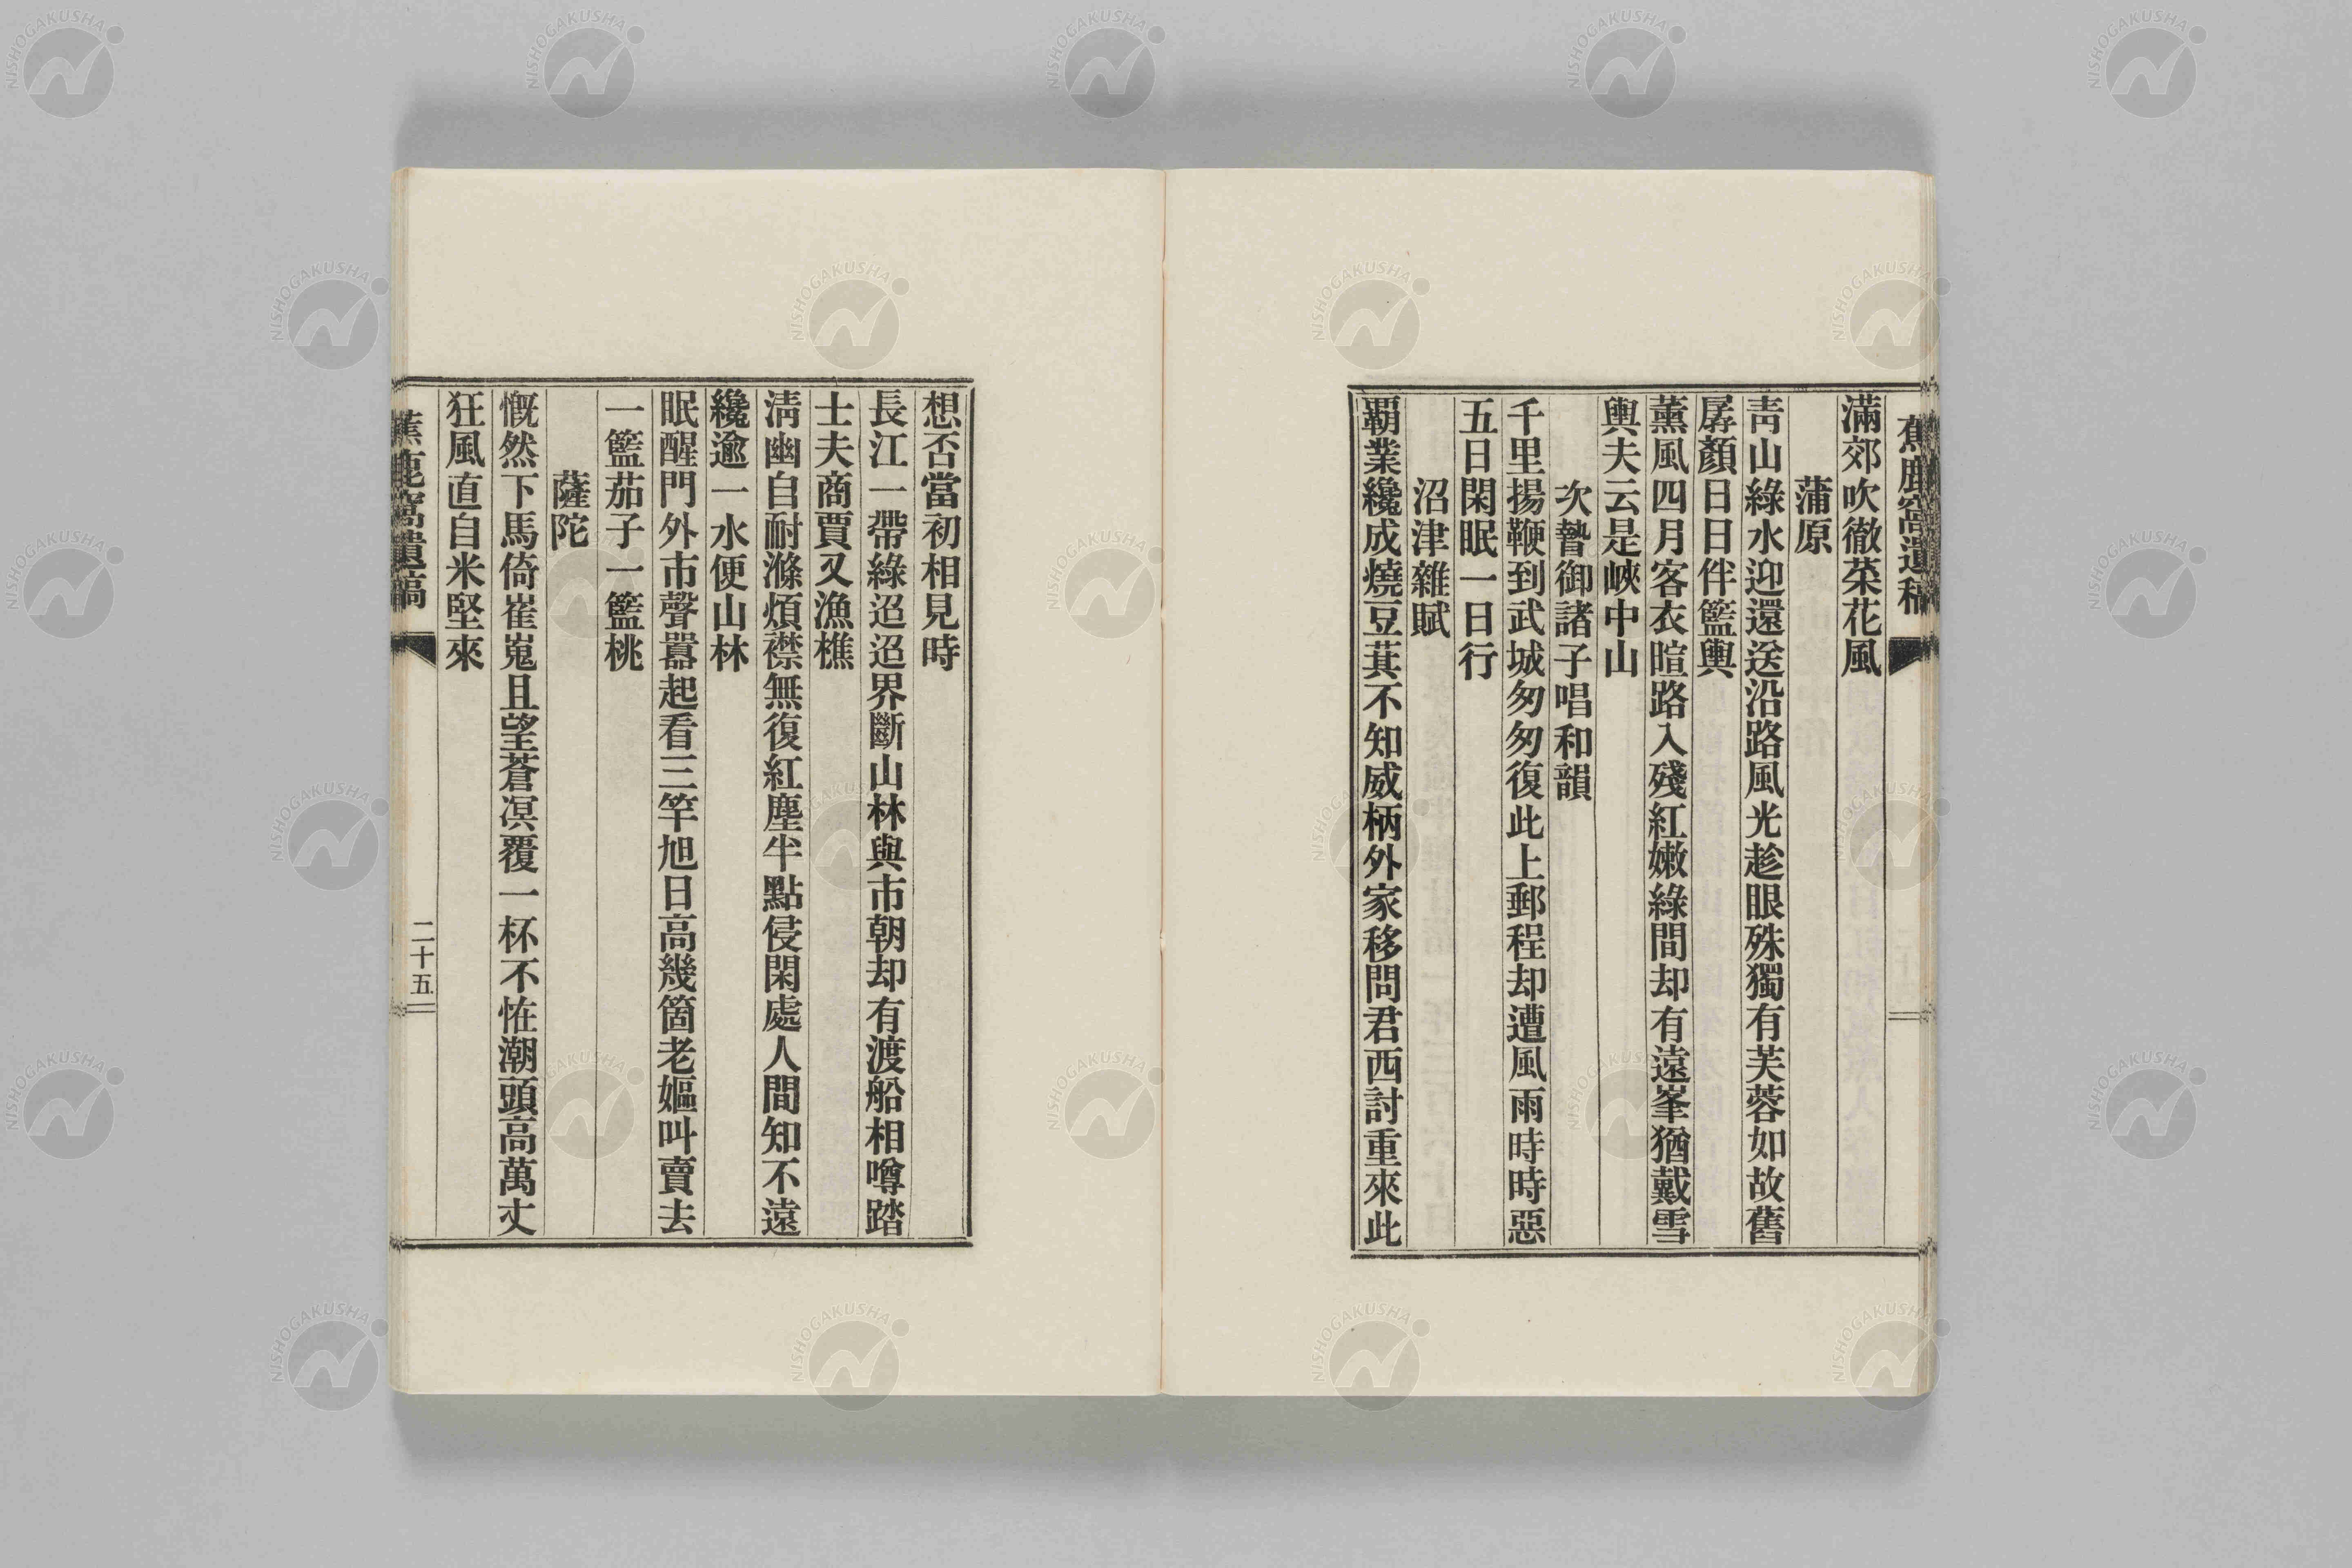 蕉鹿窩遺稿
滿郊吹徹菜花風
蒲原
靑山綠水迎還送沿路風光趁眼殊獨有芙蓉如故舊
孱顏日日伴籃輿
薰風四月客衣暄路入殘紅嫩綠間却有遠峯猶戴雪
輿夫云是峽中山
次贄御諸子唱和韻
千里揚鞭到武城匆匆復此上郵程却遭風雨時時惡
五日閑眠一日行
沼津雜賦
覇業纔成燒豆萁不知威柄外家移問君西討重來此
想否當初相見時
長江一帶綠迢迢界斷山林與市朝却有渡船相噂踏
士夫商賈又漁樵
淸幽自耐滌煩襟無復紅塵半點侵閑處人間知不遠
纔逾一水便山林
眠醒門外市聲囂起看三竿旭日高幾箇老嫗叫賣去
一籃茄子一籃桃
薩陀
慨然下馬倚崔嵬且望蒼溟覆一杯不恠潮頭高萬丈
狂風直自米堅來
蕉鹿窩遺稿
二十五
NISHOGAKUSHA